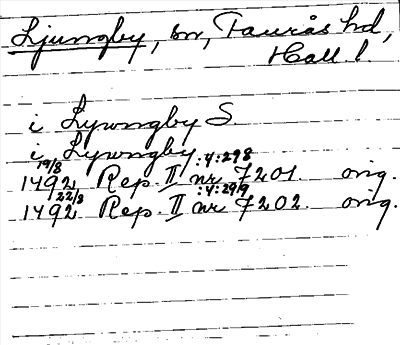 Ljungby, sn, Faurås hd,
Hall l.
i Lywngby S
i Lywngby
19/8 :4:298
1492 Rep. II nr 7201. orig.
22/8 :4:299
1492 Rep. II nr 7202. orig.